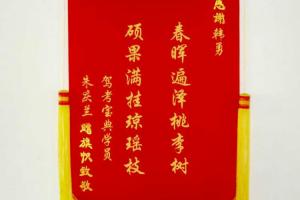 感謝韩勇
春晖遍泽桃李树
硕果满挂琼瑶枝
驾考宝典学员
朱云兰 赠旗帜致敬